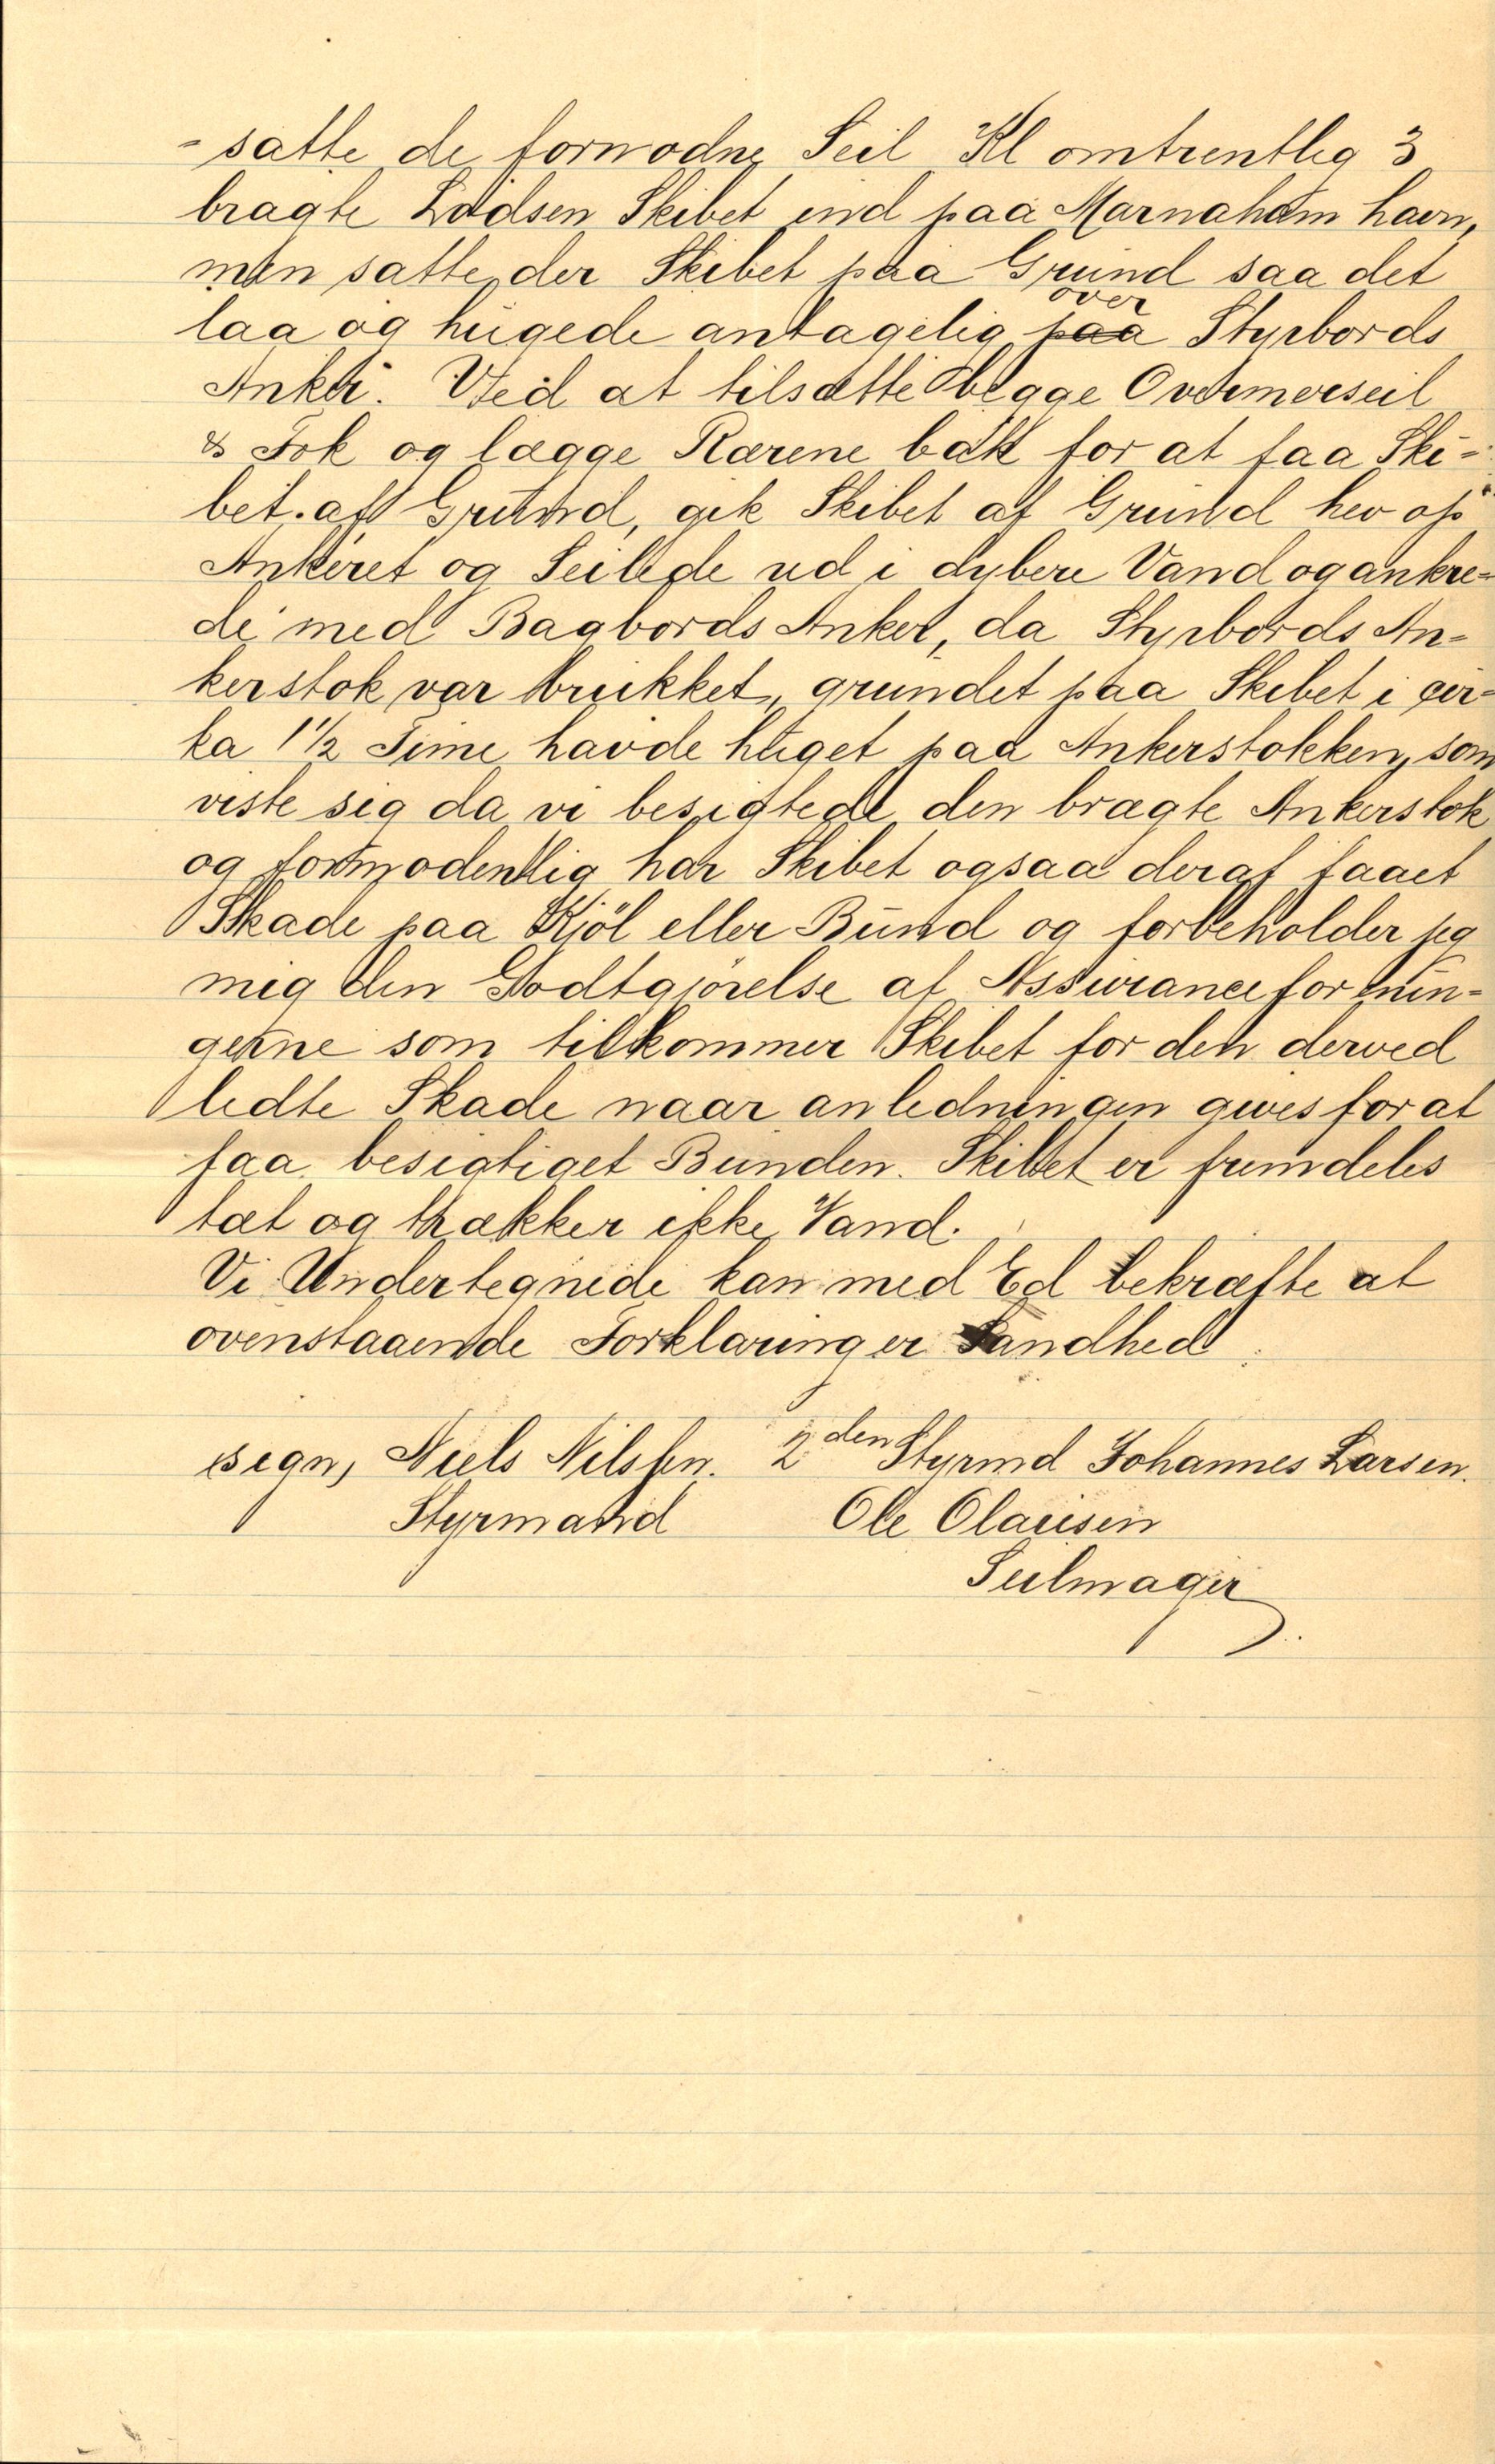 - satte de fornødne Seil Kl omtrentlig 3
bragte Lodsen Skibet ind paa Marnaham havn,
men satte der Skibet paa Grund saa det
laa og hugede antagelig paa over Styrbords
Anker. Ved at tilsætte begge Overmerseil
& Fok og lægge Rærene bak for at faa Ski-
bet af Grund, gik Skibet af Grund hev op
Ankeret og Seilede ud i dybere Vand og ankre-
de med Bagbords Anker, da Styrbords An-
kerstok var brukket, grundet paa Skibet i cir-
ka 1½ Time havde huget paa Ankerstokken, som
viste sig da vi besigtede den brægte Ankerstok
og formodentlig har Skibet ogsaa deraf faaet
Skade paa Kjöl eller Bund og forbeholder jeg
mig den Godtgjörelse af Assuranceforenin-
gerne som tilkommer Skibet for den derved
ledte Skade naar anledningen gives for at
faa besigtiget Bunden. Skibet er fremdeles
tæt og trækker ikke Vand.
Vi Undertegnede kan med Ed bekræfte at
ovenstaaende Forklaring er Sandhed
sign, Niels Nilsen. 2den Styrmd Johannes Larsen.
Styrmand Ole Olausen
Seilmager